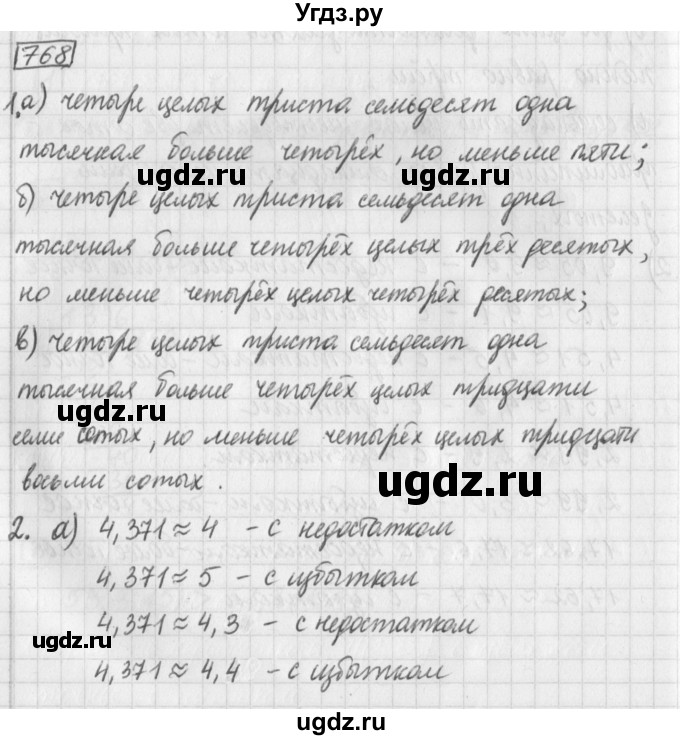 Угдз.ру
768
1.а) четыре целых триста семьдесят одна
тысячная больше четырёх, но меньше пяти;
ugdz.ru ugdz.ru
б) четыре целых триста семьдесят одна
тысячная больше четырёх целых трёх десятых,
но меньше четырёх целых четырёх десятых;
в) четыре целых триста семьдесят одна
тысячная больше четырёх целых тридцати
ugdz.ru
семи сотых, но меньше четырёх целых тридцати
восьми сотых.
ugdz.ru
2. а) 4,371 ≈ 4 - с недостатком
4,371 ≈ 5 - с избытком
4,371 ≈ 4,3 - с недостатком
ugdz.ru ugdz.ru
4,371 ≈ 4,4 - с избытком
ugdz.ru